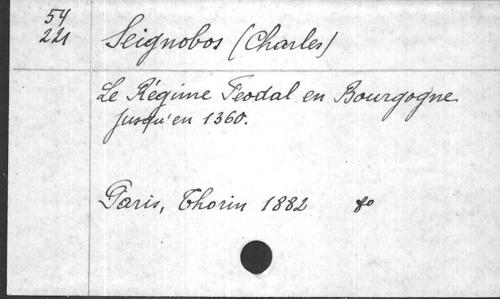 54
221
Seignobos (Charles)
Le Régime Feodal en Bourgogne
jusqu'en 1360.
Paris, Thorin 1882 8o